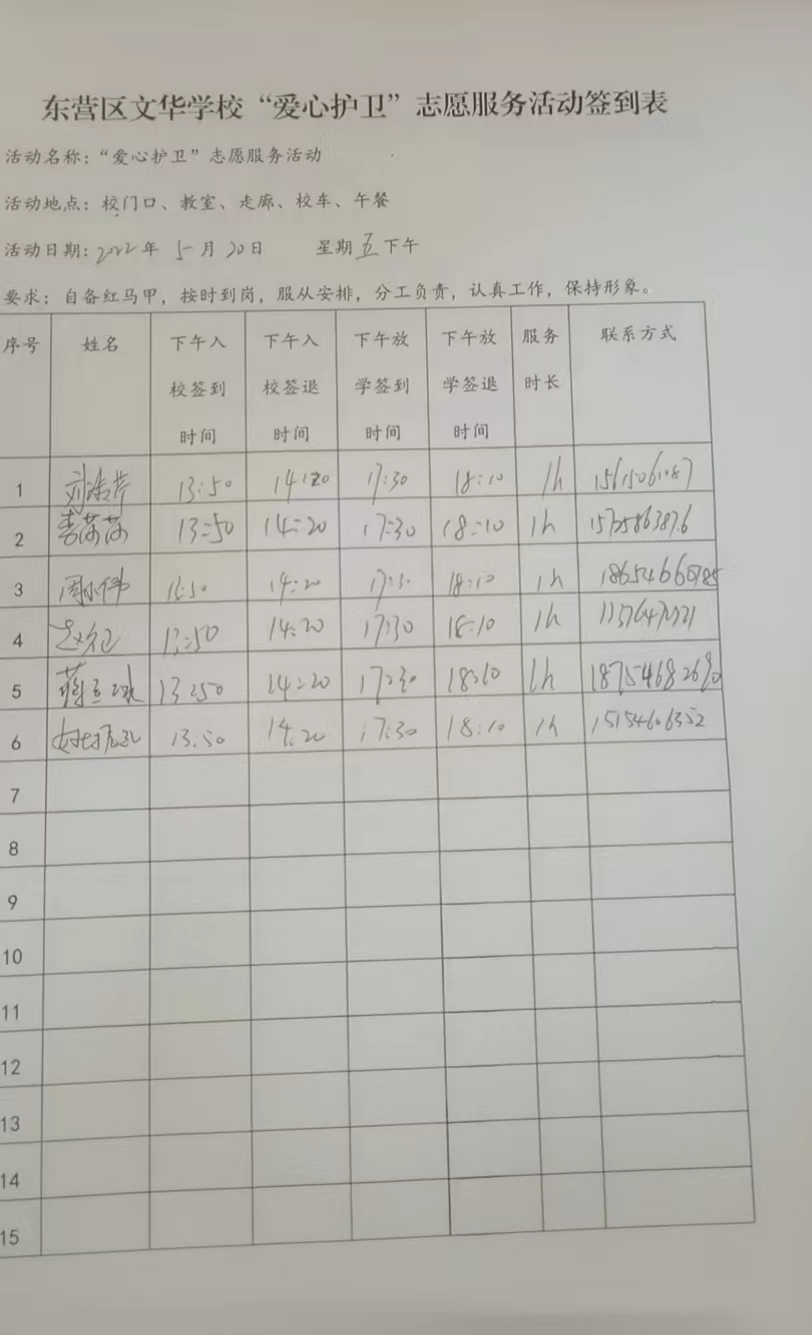 东营区文华学校“爱心护卫”志愿服务活动签到表
活动名称：“爱心护卫”志愿服务活动
活动地点：校门口、教室、走廊、校车、午餐
活动日期：2022年 5月20日 星期五下午
要求：自备红马甲，按时到岗，服从安排，分工负责，认真工作，保持形象。
序号 姓名 下午入校签到时间 下午入校签退时间 下午放学签到时间 下午放学签退时间 服务时长 联系方式
1 13:50 14:20 17:30 18:10 1h
2 13:50 14:20 17:30 18:10 1h
3 14:20 18:10 1h
4 13:50 14:20 17:30 18:10 1h
5 13:50 14:20 17:30 18:10 1h
6 13:50 14:20 17:30 18:10 1h 15154606352
7
8
9
10
11
12
13
14
15